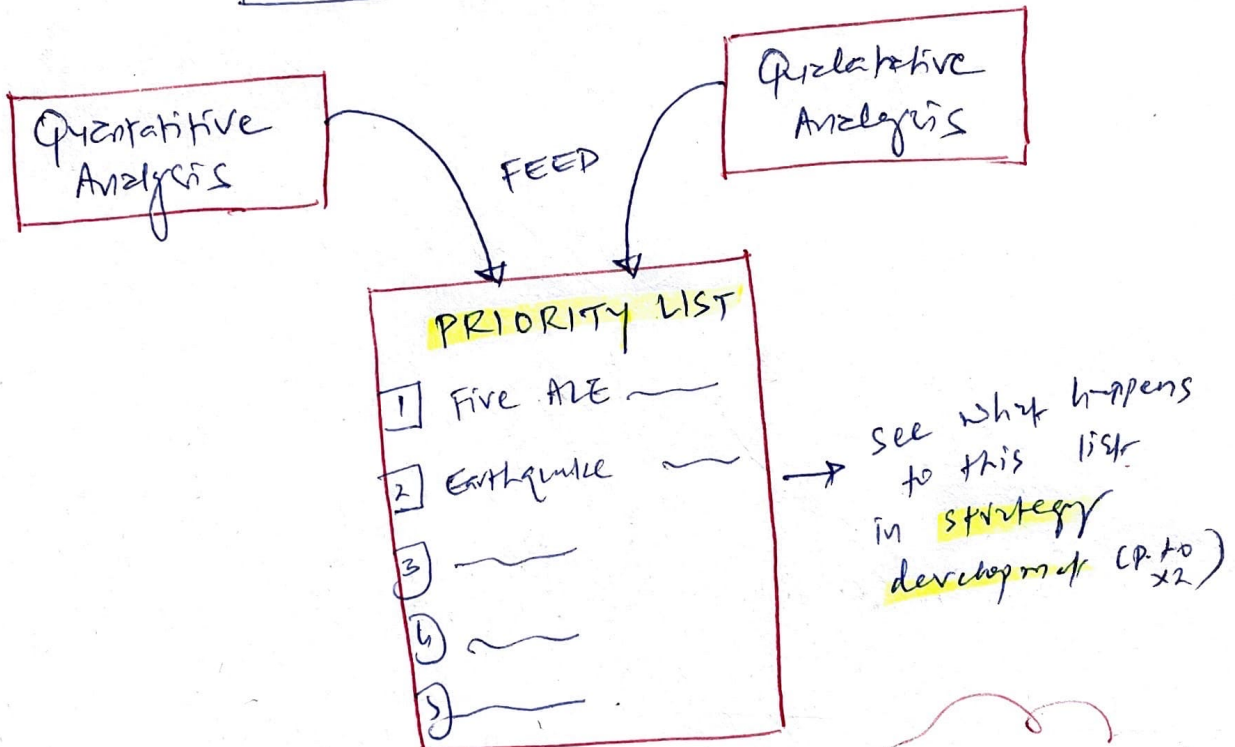 Quantatitive
Analysis
Qualatative
Analysis
FEED
PRIORITY LIST
1 Fire ALE
2 Earthquake
3
4
5
→ see what happens
to this list
in strategy
development (p.t.o
x2)